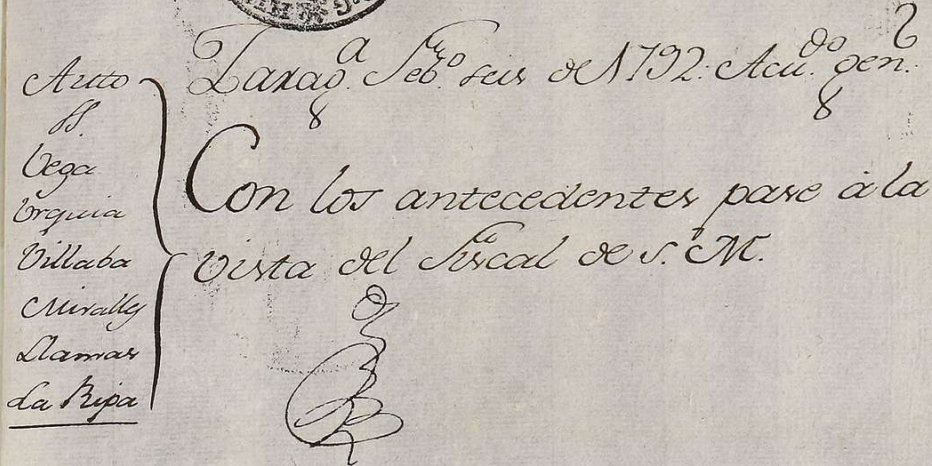 Auto
SS.
Vega
Urquia
Villaba
Miralles
Llamas
La Ripa
Zarag.ª Feb.º seis de 1792. Acu.do gen.l
Con los antecedentes pase à la
vista del Fiscal de S. M.